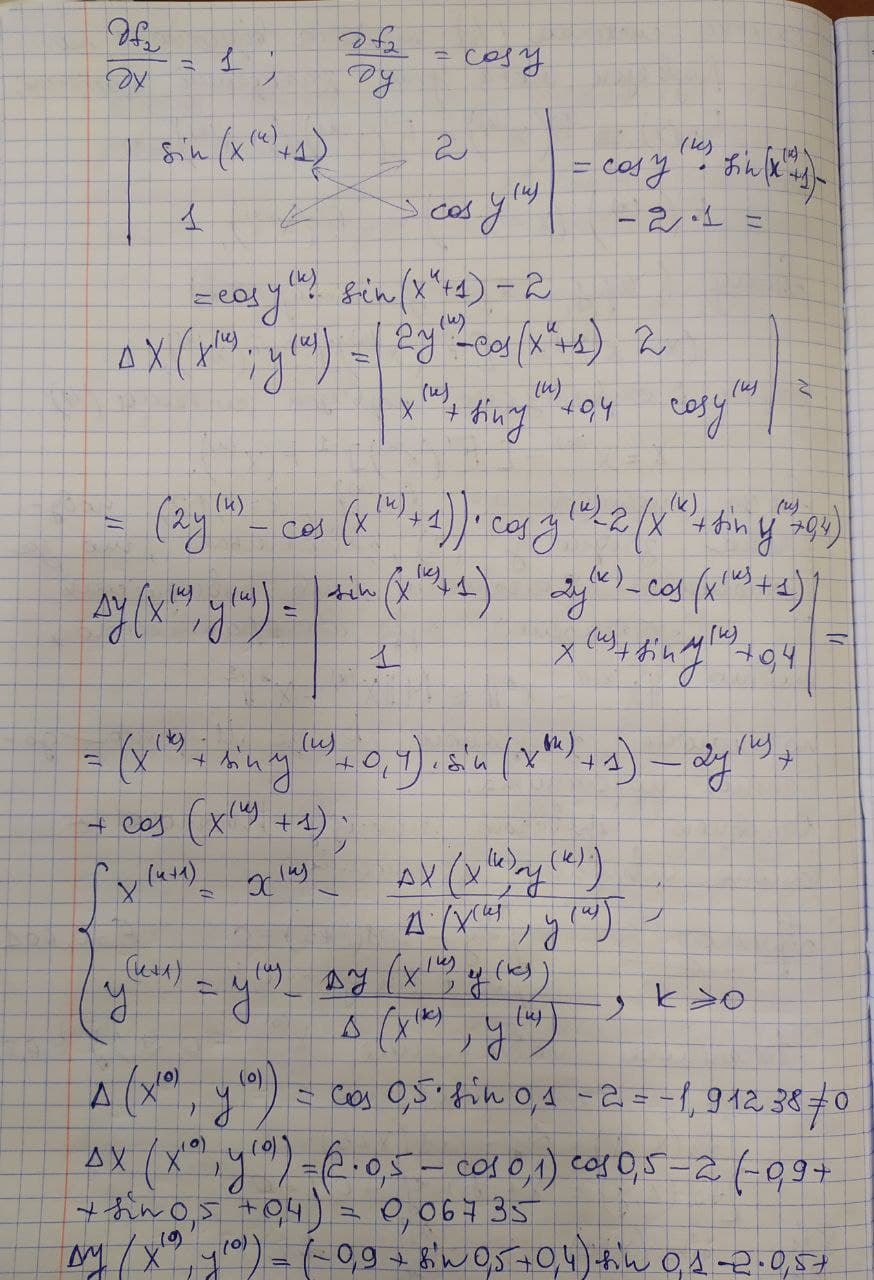 ∂f₂/∂x = 1 ; ∂f₂/∂y = cos y
| sin(x^(k)+1) 2 | = cos y^(k) · sin(x^(k)+1) -
| 1 cos y^(k) | - 2·1 =
= cos y^(k) · sin(x^k+1) - 2
Δx(x^(k); y^(k)) = | 2y^(k) - cos(x^k+1) 2 |
| x^(k) + sin y^(k) + 0,4 cos y^(k) | =
= (2y^(k) - cos(x^(k)+1)) · cos y^(k) - 2(x^(k) + sin y^(k) + 0,4)
Δy(x^(k), y^(k)) = | sin(x^(k)+1) 2y^(k) - cos(x^(k)+1) | =
| 1 x^(k) + sin y^(k) + 0,4 |
= (x^(k) + sin y^(k) + 0,4) · sin(x^(k) + 1) - 2y^(k) +
+ cos(x^(k) + 1);
{ x^(k+1) = x^(k) - Δx(x^(k), y^(k)) / Δ(x^(k), y^(k)) ;
y^(k+1) = y^(k) - Δy(x^(k), y^(k)) / Δ(x^(k), y^(k)) , k ⩾ 0
Δ(x^(0), y^(0)) = cos 0,5 · sin 0,1 - 2 = -1,91238 ≠ 0
Δx(x^(0), y^(0)) = (2·0,5 - cos 0,1) cos 0,5 - 2(-0,9 +
+ sin 0,5 + 0,4) = 0,06735
Δy(x^(0), y^(0)) = (-0,9 + sin 0,5 + 0,4) sin 0,1 - 2·0,5 +